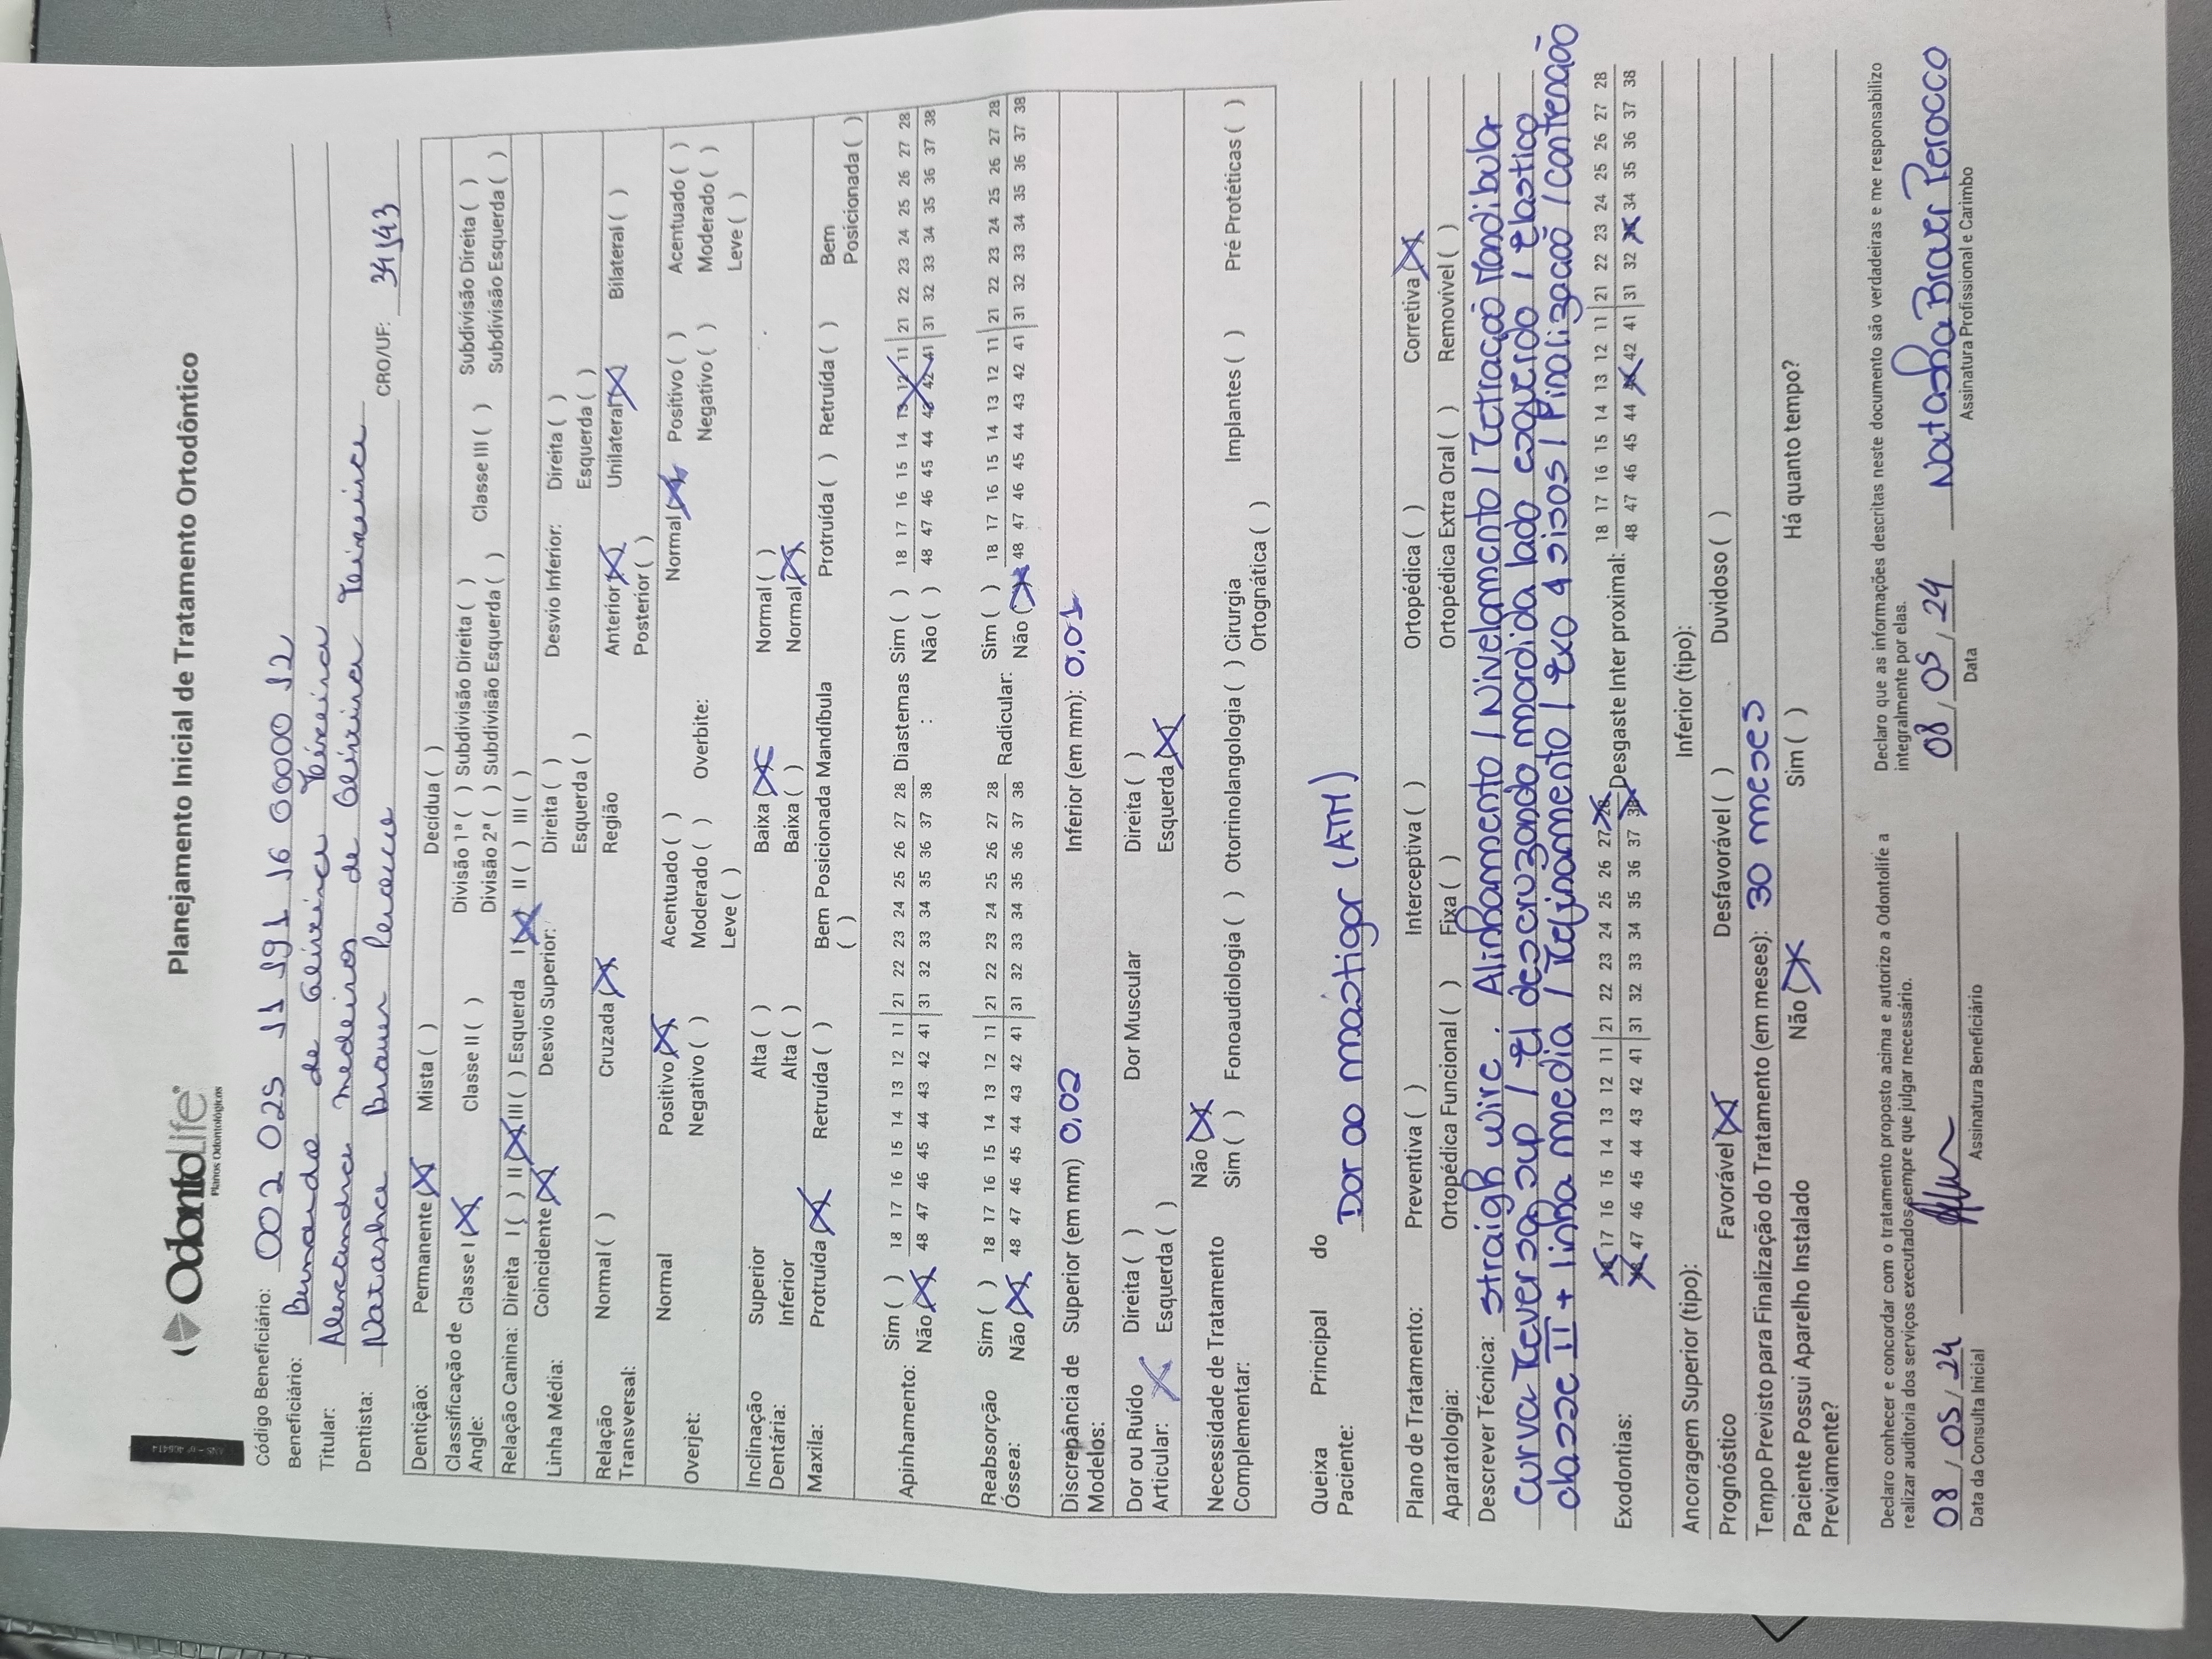 OdontoLife
Planos Odontológicos
Planejamento Inicial de Tratamento Ortodôntico
Código Beneficiário: 002 025 11 191 16 00000 12
Beneficiário: de Teixeira
Titular: Alexandre medeiros de Teixeira
Dentista: Natasha Brauer Perocco CRO/UF: 34143
Dentição: Permanente (X) Mista ( ) Decídua ( )
Classificação de Angle: Classe I (X) Classe II ( ) Divisão 1ª ( ) Subdivisão Direita ( ) Classe III ( ) Subdivisão Direita ( )
Divisão 2ª ( ) Subdivisão Esquerda ( ) Subdivisão Esquerda ( )
Relação Canina: Direita I ( ) II (X) III ( ) Esquerda I (X) II ( ) III ( )
Linha Média: Coincidente (X) Desvio Superior: Direita ( ) Desvio Inferior: Direita ( )
Esquerda ( ) Esquerda ( )
Relação Transversal: Normal ( ) Cruzada (X) Região Anterior (X) Unilateral (X) Bilateral ( )
Posterior ( )
Overjet: Normal Positivo (X) Acentuado ( ) Overbite: Normal (X) Positivo ( ) Acentuado ( )
Negativo ( ) Moderado ( ) Negativo ( ) Moderado ( )
Leve ( ) Leve ( )
Inclinação Dentária: Superior Alta ( ) Baixa (X) Normal ( )
Inferior Alta ( ) Baixa ( ) Normal (X)
Maxila: Protruída (X) Retruída ( ) Bem Posicionada ( ) Mandíbula Protruída ( ) Retruída ( ) Bem Posicionada ( )
Apinhamento: Sim ( ) 18 17 16 15 14 13 12 11 | 21 22 23 24 25 26 27 28 Diastemas : Sim ( ) 18 17 16 15 14 13 12 11 | 21 22 23 24 25 26 27 28
Não (X) 48 47 46 45 44 43 42 41 | 31 32 33 34 35 36 37 38 Não ( ) 48 47 46 45 44 43 42 41 | 31 32 33 34 35 36 37 38
Reabsorção Óssea: Sim ( ) 18 17 16 15 14 13 12 11 | 21 22 23 24 25 26 27 28 Radicular: Sim ( ) 18 17 16 15 14 13 12 11 | 21 22 23 24 25 26 27 28
Não (X) 48 47 46 45 44 43 42 41 | 31 32 33 34 35 36 37 38 Não (X) 48 47 46 45 44 43 42 41 | 31 32 33 34 35 36 37 38
Discrepância de Modelos: Superior (em mm) 0,02 Inferior (em mm): 0,01
Dor ou Ruído Articular: X Direita ( ) Dor Muscular Direita ( )
Esquerda ( ) Esquerda (X)
Necessidade de Tratamento Complementar: Não (X)
Sim ( ) Fonoaudiologia ( ) Otorrinolangologia ( ) Cirurgia Ortognática ( ) Implantes ( ) Pré Protéticas ( )
Queixa Principal do Paciente: Dor ao mastigar (ATM)
Plano de Tratamento: Preventiva ( ) Interceptiva ( ) Ortopédica ( ) Corretiva (X)
Aparatologia: Ortopédica Funcional ( ) Fixa ( ) Ortopédica Extra Oral ( ) Removível ( )
Descrever Técnica: straigh wire. Alinhamento / Nivelamento / retração mandibular
curva reversa sup / el descruzando mordida lado esquerdo / elastico
classe III + linha media / refinamento / exo 4 sisos / Finalização / contenção
Exodontias: 18 17 16 15 14 13 12 11 | 21 22 23 24 25 26 27 28 Desgaste Inter proximal: 18 17 16 15 14 13 12 11 | 21 22 23 24 25 26 27 28
48 47 46 45 44 43 42 41 | 31 32 33 34 35 36 37 38 48 47 46 45 44 43 42 41 | 31 32 33 34 35 36 37 38
Ancoragem Superior (tipo): Inferior (tipo):
Prognóstico Favorável (X) Desfavorável ( ) Duvidoso ( )
Tempo Previsto para Finalização do Tratamento (em meses): 30 meses
Paciente Possui Aparelho Instalado Previamente? Não (X) Sim ( ) Há quanto tempo?
Declaro conhecer e concordar com o tratamento proposto acima e autorizo a Odontolife a
realizar auditoria dos serviços executados sempre que julgar necessário.
Declaro que as informações descritas neste documento são verdadeiras e me responsabilizo
integralmente por elas.
08 / 05 / 24 08 / 05 / 24 Natasha Brauer Perocco
Data da Consulta Inicial Assinatura Beneficiário Data Assinatura Profissional e Carimbo